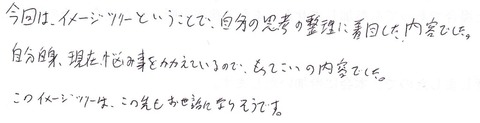 今回は、イメージツリーということで、自分の思考の整理に着目した内容でした。
自分自身、現在、悩み事をかかえているので、もってこいの内容でした。
このイメージツリーは、この先もお世話になりそうです。